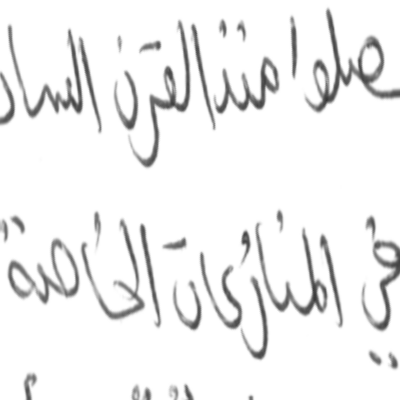 صلوا منذ القرن الساد
في المنازعات الخاصة